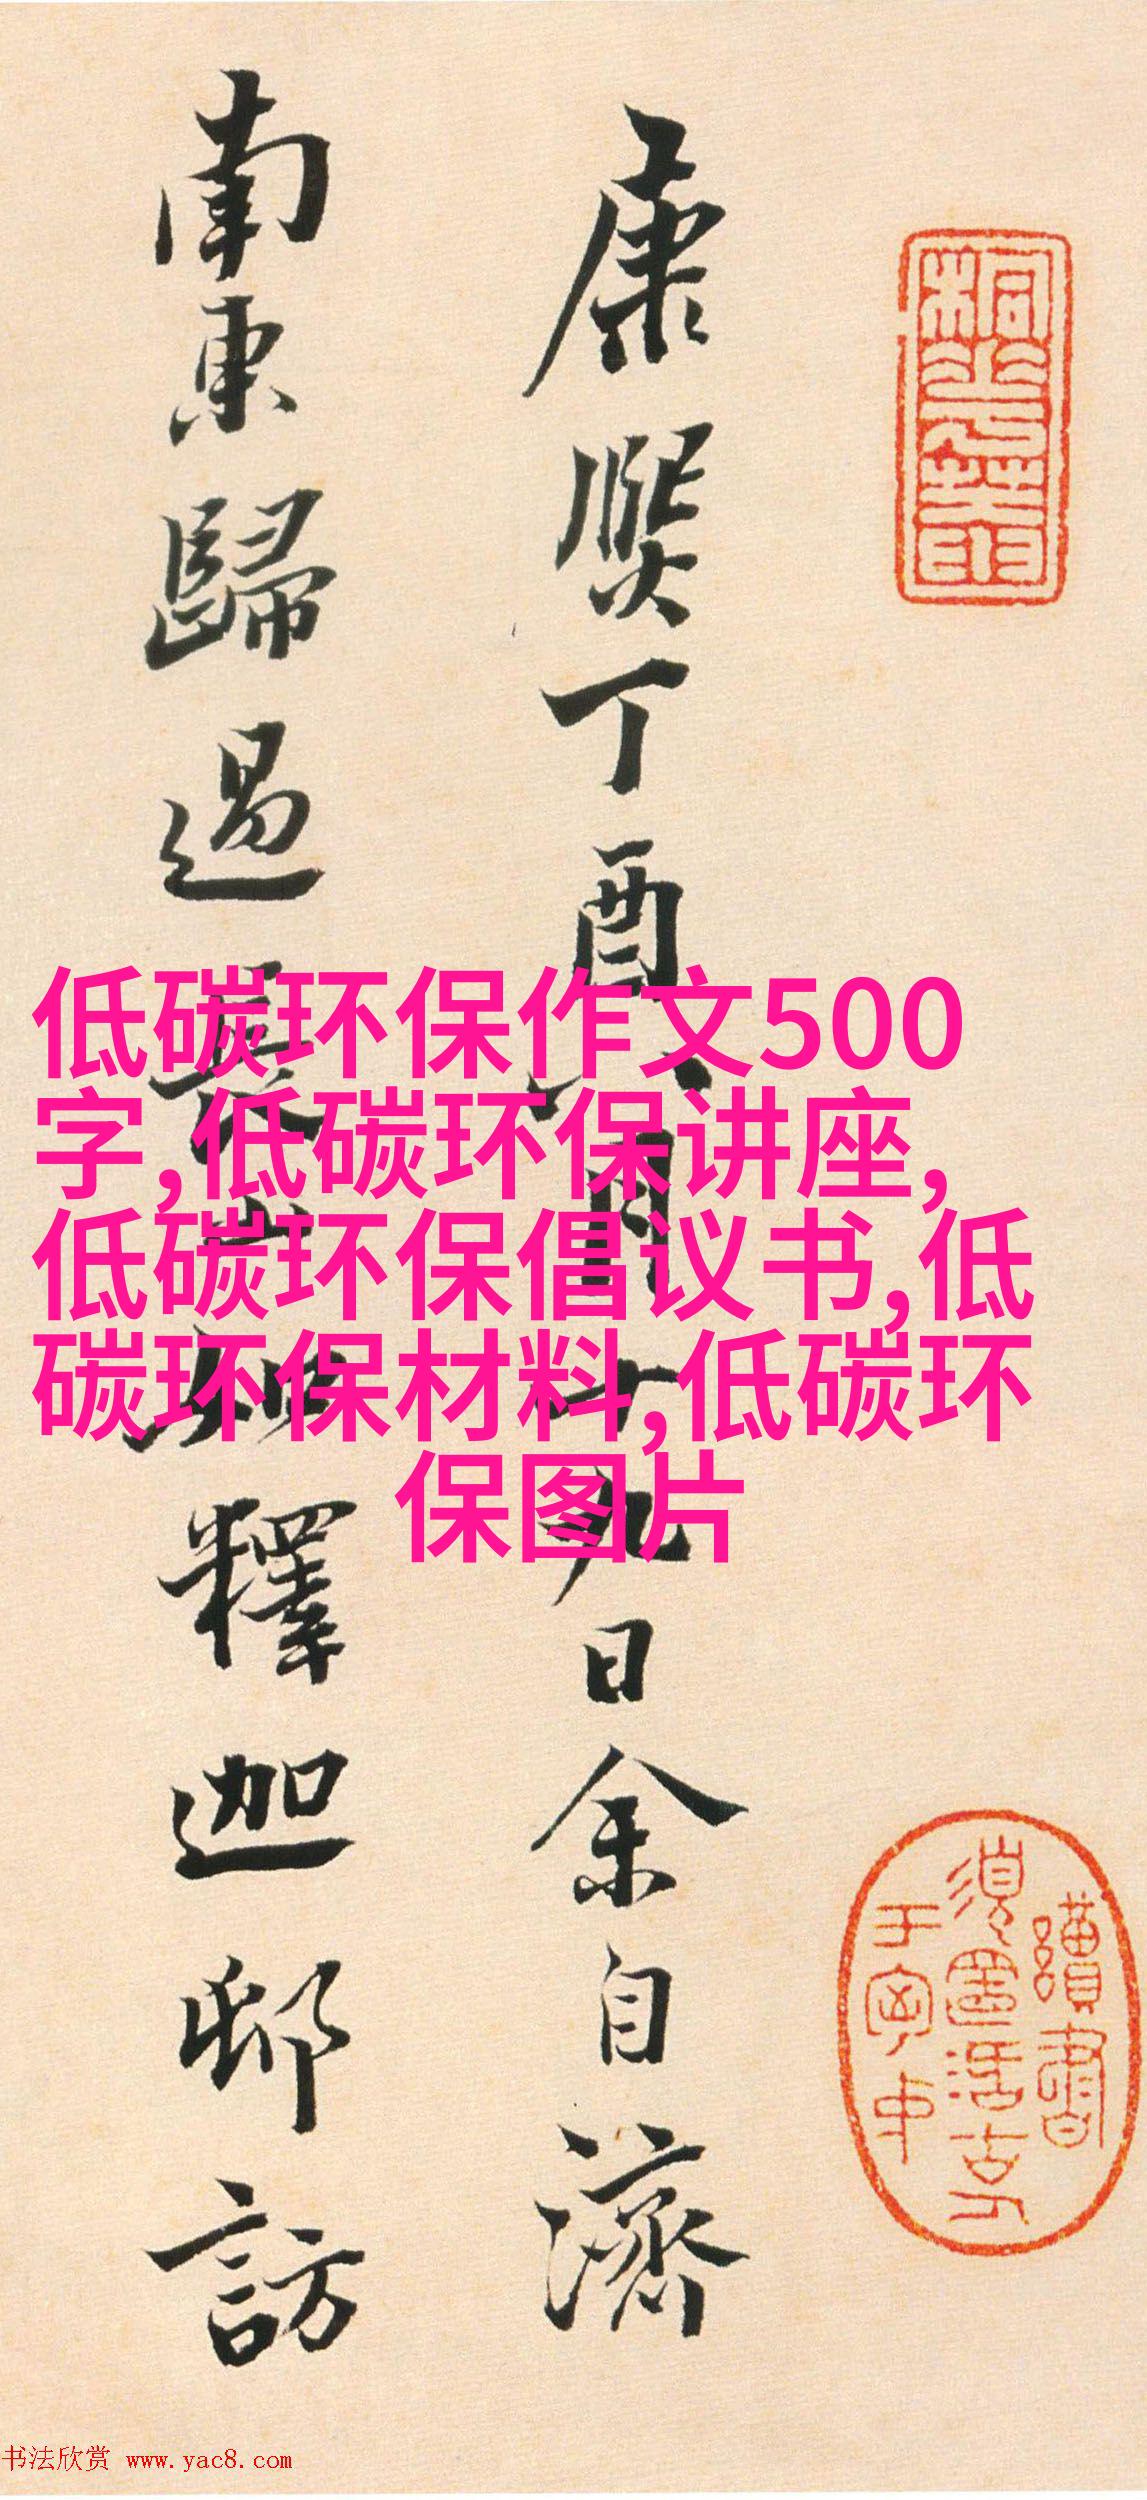 康熙丁酉八月十九日余自濟
南東歸過長山釋迦邨訪
低碳环保作文500
字,低碳环保讲座,
低碳环保倡议书,低
碳环保材料,低碳环
保图片
书法欣赏 www.yac8.com